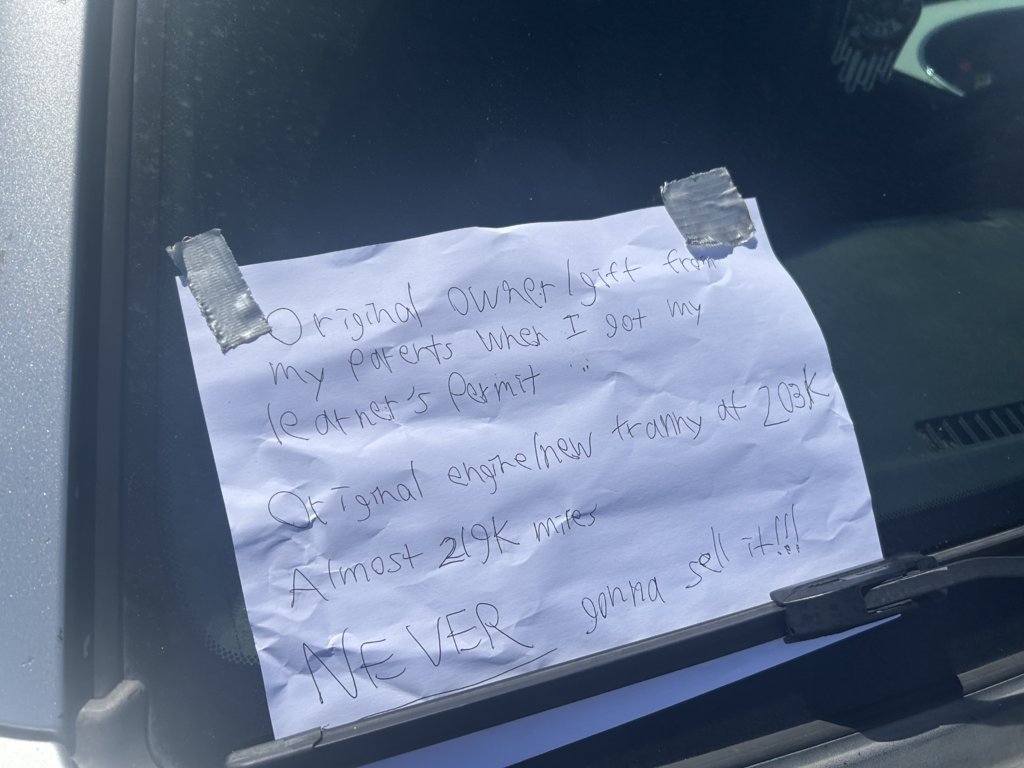 Original owner/gift from
my parents when I got my
learner's permit :)
Original engine/new tranny at 203K
Almost 219K miles
NEVER gonna sell it!!!